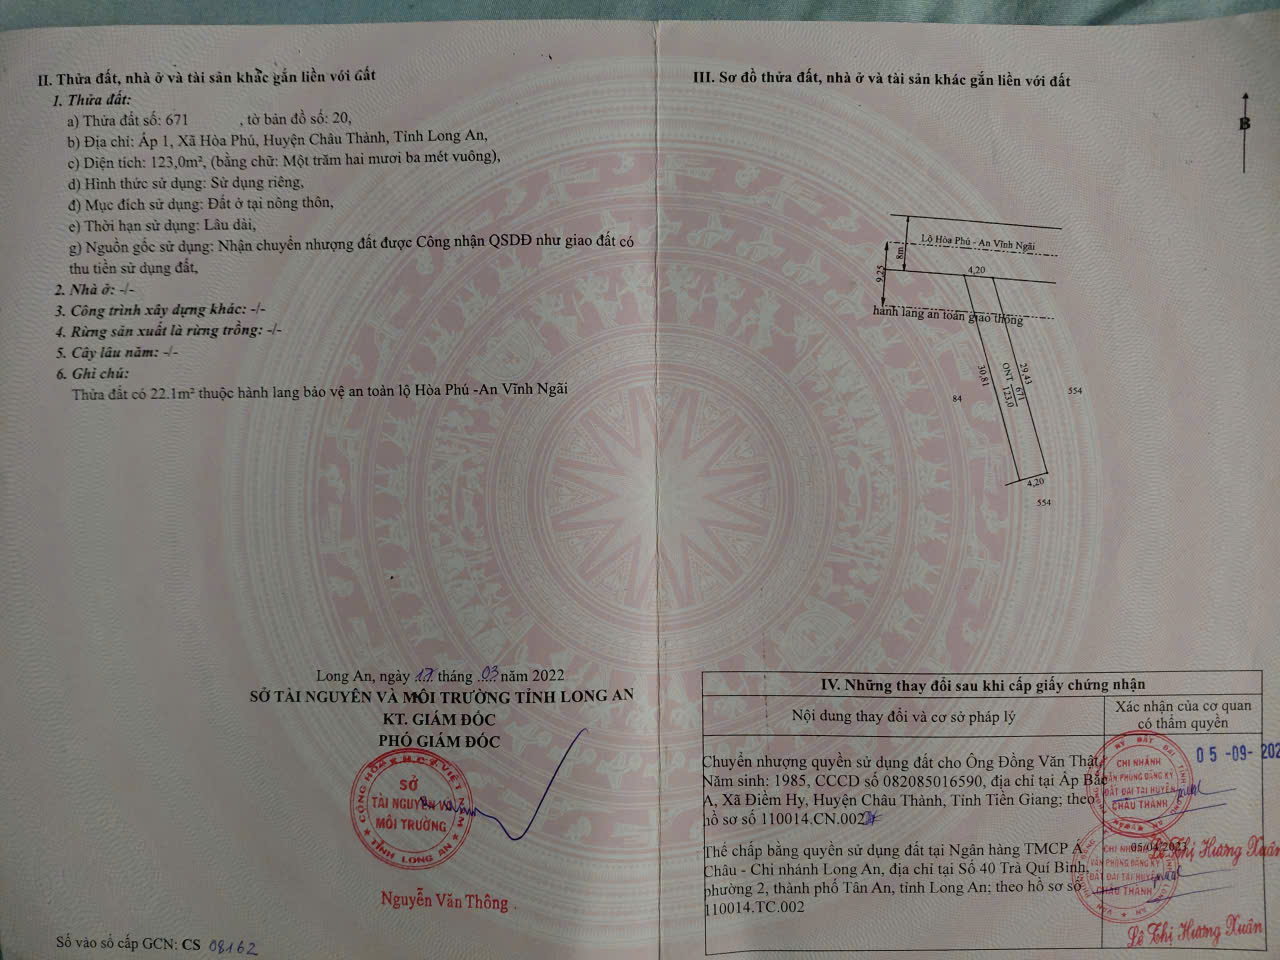 II. Thửa đất, nhà ở và tài sản khác gắn liền với đất
1. Thửa đất:
a) Thửa đất số: 671 , tờ bản đồ số: 20,
b) Địa chỉ: Ấp 1, Xã Hòa Phú, Huyện Châu Thành, Tỉnh Long An,
c) Diện tích: 123,0m², (bằng chữ: Một trăm hai mươi ba mét vuông),
d) Hình thức sử dụng: Sử dụng riêng,
đ) Mục đích sử dụng: Đất ở tại nông thôn,
e) Thời hạn sử dụng: Lâu dài,
g) Nguồn gốc sử dụng: Nhận chuyển nhượng đất được Công nhận QSDĐ như giao đất có
thu tiền sử dụng đất,
2. Nhà ở: -/-
3. Công trình xây dựng khác: -/-
4. Rừng sản xuất là rừng trồng: -/-
5. Cây lâu năm: -/-
6. Ghi chú:
Thửa đất có 22.1m² thuộc hành lang bảo vệ an toàn lộ Hòa Phú -An Vĩnh Ngãi
Long An, ngày 17 tháng 03 năm 2022
SỞ TÀI NGUYÊN VÀ MÔI TRƯỜNG TỈNH LONG AN
KT. GIÁM ĐỐC
PHÓ GIÁM ĐỐC
CỘNG HÒA X.H.C.N VIỆT NAM
SỞ
TÀI NGUYÊN VÀ
MÔI TRƯỜNG
TỈNH LONG AN
Nguyễn Văn Thông
Số vào sổ cấp GCN: CS 08162
III. Sơ đồ thửa đất, nhà ở và tài sản khác gắn liền với đất
B
Lộ Hòa Phú - An Vĩnh Ngãi
8m
9,25
4,20
hành lang an toàn giao thông
30,81
ONT 671
123,0
29,43
84
554
4,20
554
IV. Những thay đổi sau khi cấp giấy chứng nhận
Nội dung thay đổi và cơ sở pháp lý
Xác nhận của cơ quan
có thẩm quyền
Chuyển nhượng quyền sử dụng đất cho Ông Đồng Văn Thật,
Năm sinh: 1985, CCCD số 082085016590, địa chỉ tại Ấp Bắc
A, Xã Điềm Hy, Huyện Châu Thành, Tỉnh Tiền Giang; theo
hồ sơ số 110014.CN.002
05-09-202
CHI NHÁNH
VĂN PHÒNG ĐĂNG KÝ
ĐẤT ĐAI TẠI HUYỆN
CHÂU THÀNH
Lê Thị Hương Xuân
Thế chấp bằng quyền sử dụng đất tại Ngân hàng TMCP Á
Châu - Chi nhánh Long An, địa chỉ tại Số 40 Trà Quí Bình,
phường 2, thành phố Tân An, tỉnh Long An; theo hồ sơ số
110014.TC.002
05/04/2023
CHI NHÁNH
VĂN PHÒNG ĐĂNG KÝ
ĐẤT ĐAI TẠI HUYỆN
CHÂU THÀNH
Lê Thị Hương Xuân